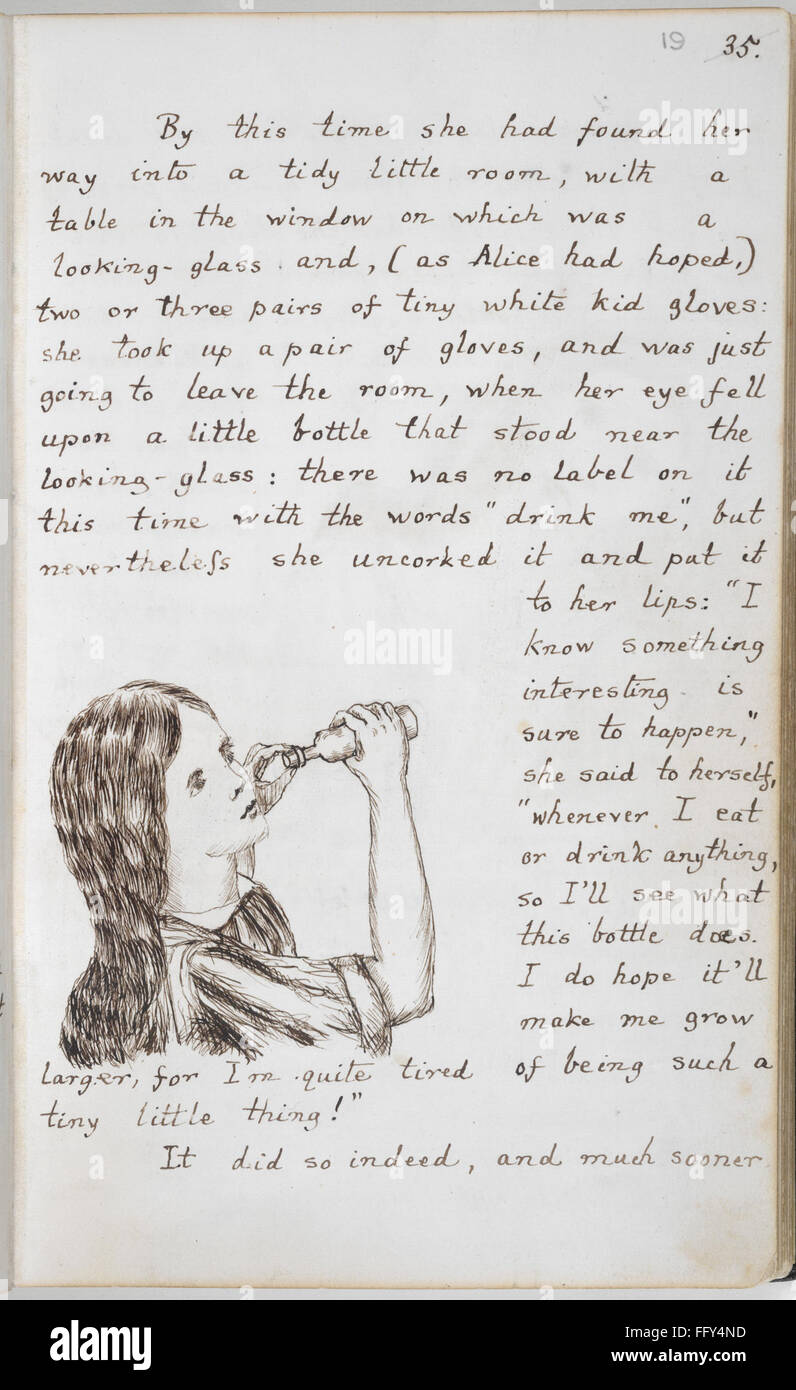 19 35.
By this time she had found her
way into a tidy little room, with a
table in the window on which was a
looking-glass and, (as Alice had hoped,)
two or three pairs of tiny white kid gloves:
she took up a pair of gloves, and was just
going to leave the room, when her eye fell
upon a little bottle that stood near the
looking-glass: there was no label on it
this time with the words "drink me", but
neverthelefs she uncorked it and put it
to her lips: "I
know something
interesting is
sure to happen,"
she said to herself,
"whenever I eat
or drink anything,
so I'll see what
this bottle does.
I do hope it'll
make me grow
larger, for I'm quite tired of being such a
tiny little thing!"
It did so indeed, and much sooner
alamy
a alamy
Image ID: FFY4ND
www.alamy.com